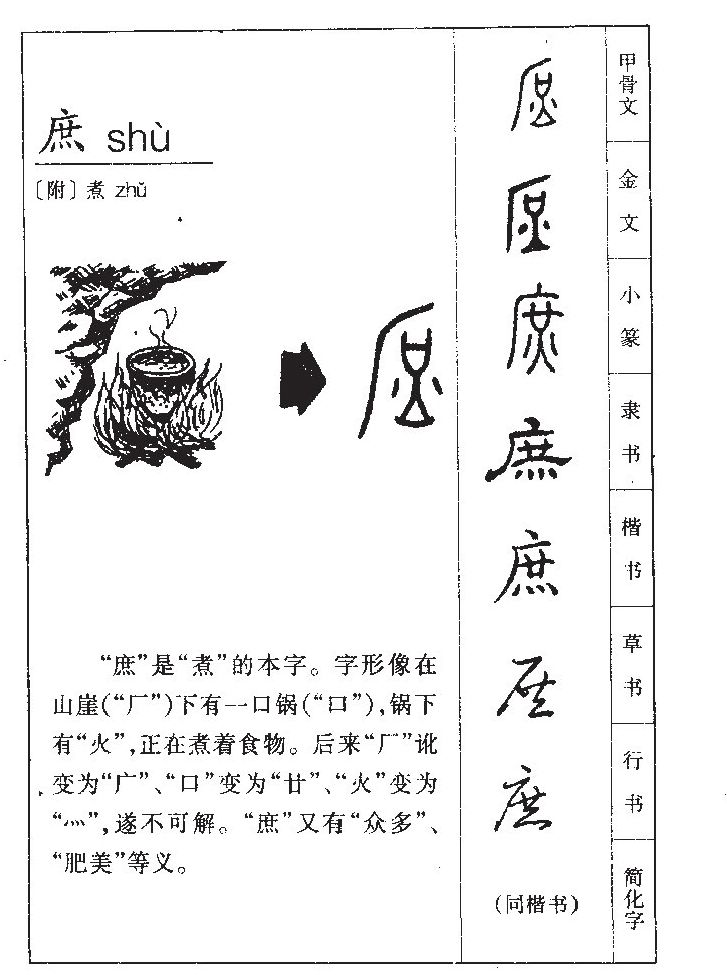 庶 shù
〔附〕煮 zhǔ
“庶”是“煮”的本字。字形像在
山崖(“厂”)下有一口锅(“口”),锅下
有“火”,正在煮着食物。后来“厂”讹
变为“广”、“口”变为“廿”、“火”变为
“灬”,遂不可解。“庶”又有“众多”、
“肥美”等义。
庶
庶
庶
庶
庶
庶
庶
(同楷书)
甲骨文
金文
小篆
隶书
楷书
草书
行书
简化字